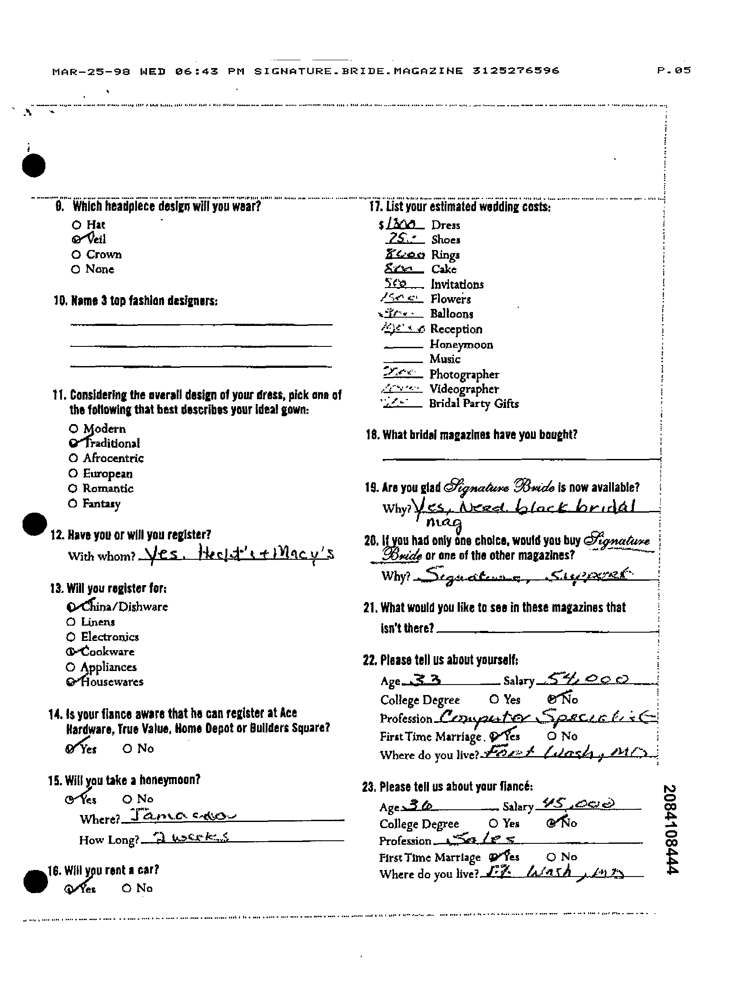 MAR-25-98 WED 06:43 PM SIGNATURE.BRIDE.MAGAZINE 3125276596 P.05
9. Which headpiece design will you wear?
O Hat
Veil
O Crown
O None
10. Name 3 top fashion designers:
11. Considering the overall design of your dress, pick one of
the following that best describes your ideal gown:
O Modern
Traditional
O Afrocentric
O European
O Romantic
O Fantasy
12. Have you or will you register?
With whom? Yes. Hecht's + Macy's
13. Will you register for:
China/Dishware
O Linens
O Electronics
Cookware
O Appliances
Housewares
14. Is your fiance aware that he can register at Ace
Hardware, True Value, Home Depot or Builders Square?
Yes O No
15. Will you take a honeymoon?
Yes O No
Where?
How Long? 2 weeks
16. Will you rent a car?
Yes O No
17. List your estimated wedding costs:
$ 1300 Dress
75.- Shoes
Rings
800 Cake
500 Invitations
1500 Flowers
Balloons
Reception
Honeymoon
Music
Photographer
Videographer
Bridal Party Gifts
18. What bridal magazines have you bought?
19. Are you glad Signature Bride is now available?
Why? Yes, Need black bridal
mag
20. If you had only one choice, would you buy Signature
Bride or one of the other magazines?
Why? Signature, support
21. What would you like to see in these magazines that
isn't there?
22. Please tell us about yourself:
Age 33 Salary 54,000
College Degree O Yes No
Profession Computer Specialist
First Time Marriage. Yes O No
Where do you live? Fort Wash, MD
23. Please tell us about your fiancé:
Age 36 Salary 45,000
College Degree O Yes No
Profession Sales
First Time Marriage Yes O No
Where do you live? Ft. Wash, MD
2084108444